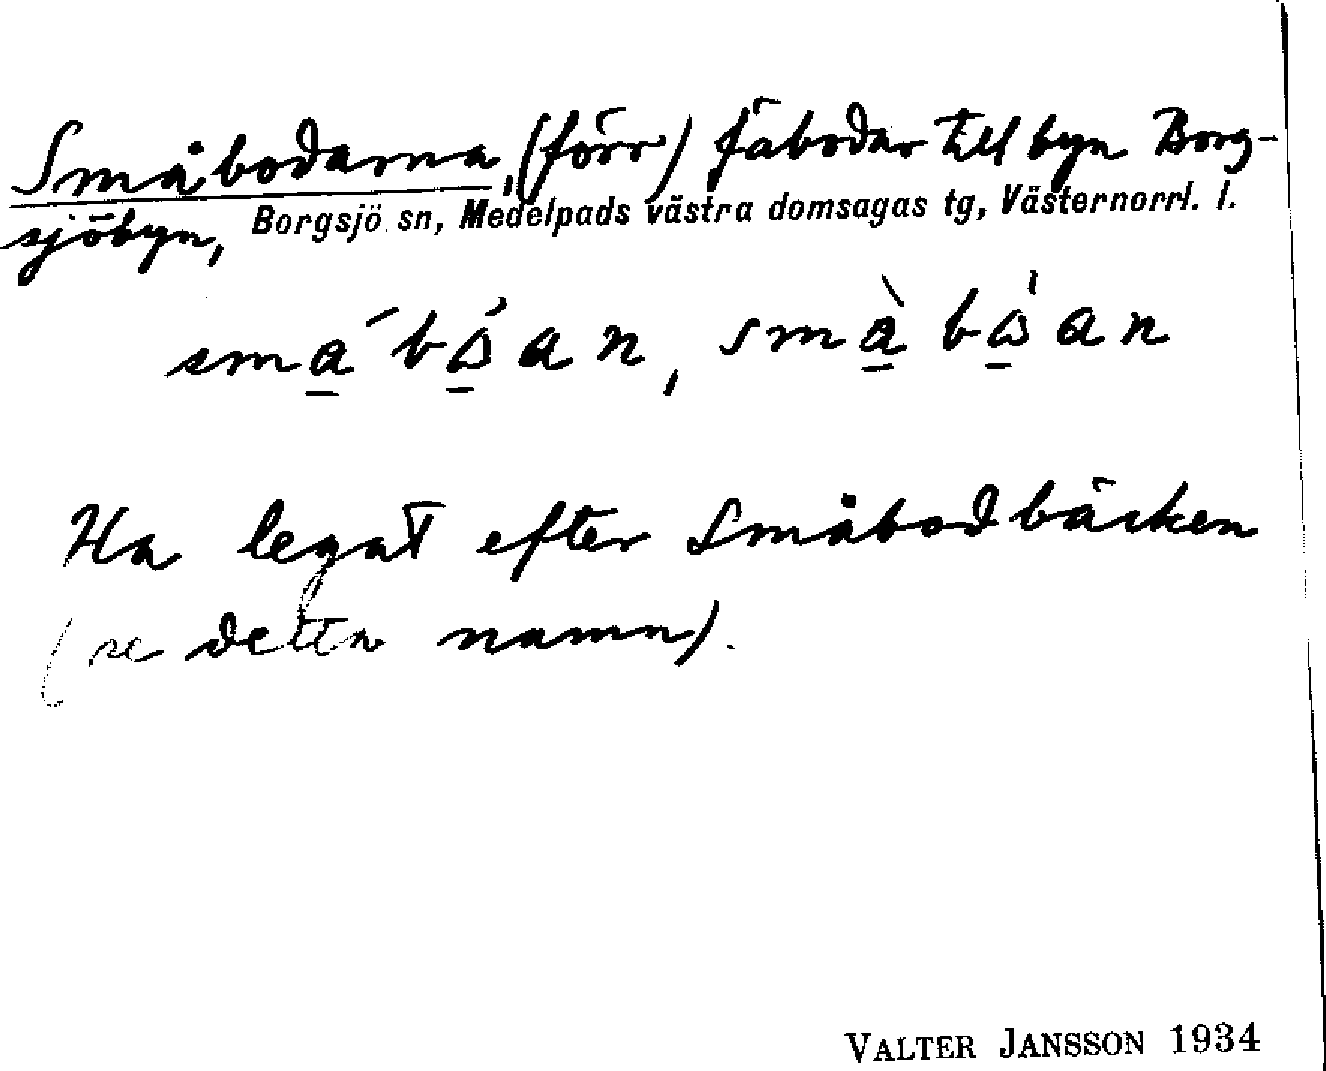 Småbodarna, (förr) fäbodar till byn Borg-
sjöbyn, Borgsjö sn, Medelpads västra domsagas tg, Västernorrl. l.
Ha legat efter Småbodbäcken
(se detta namn).
VALTER JANSSON 1934